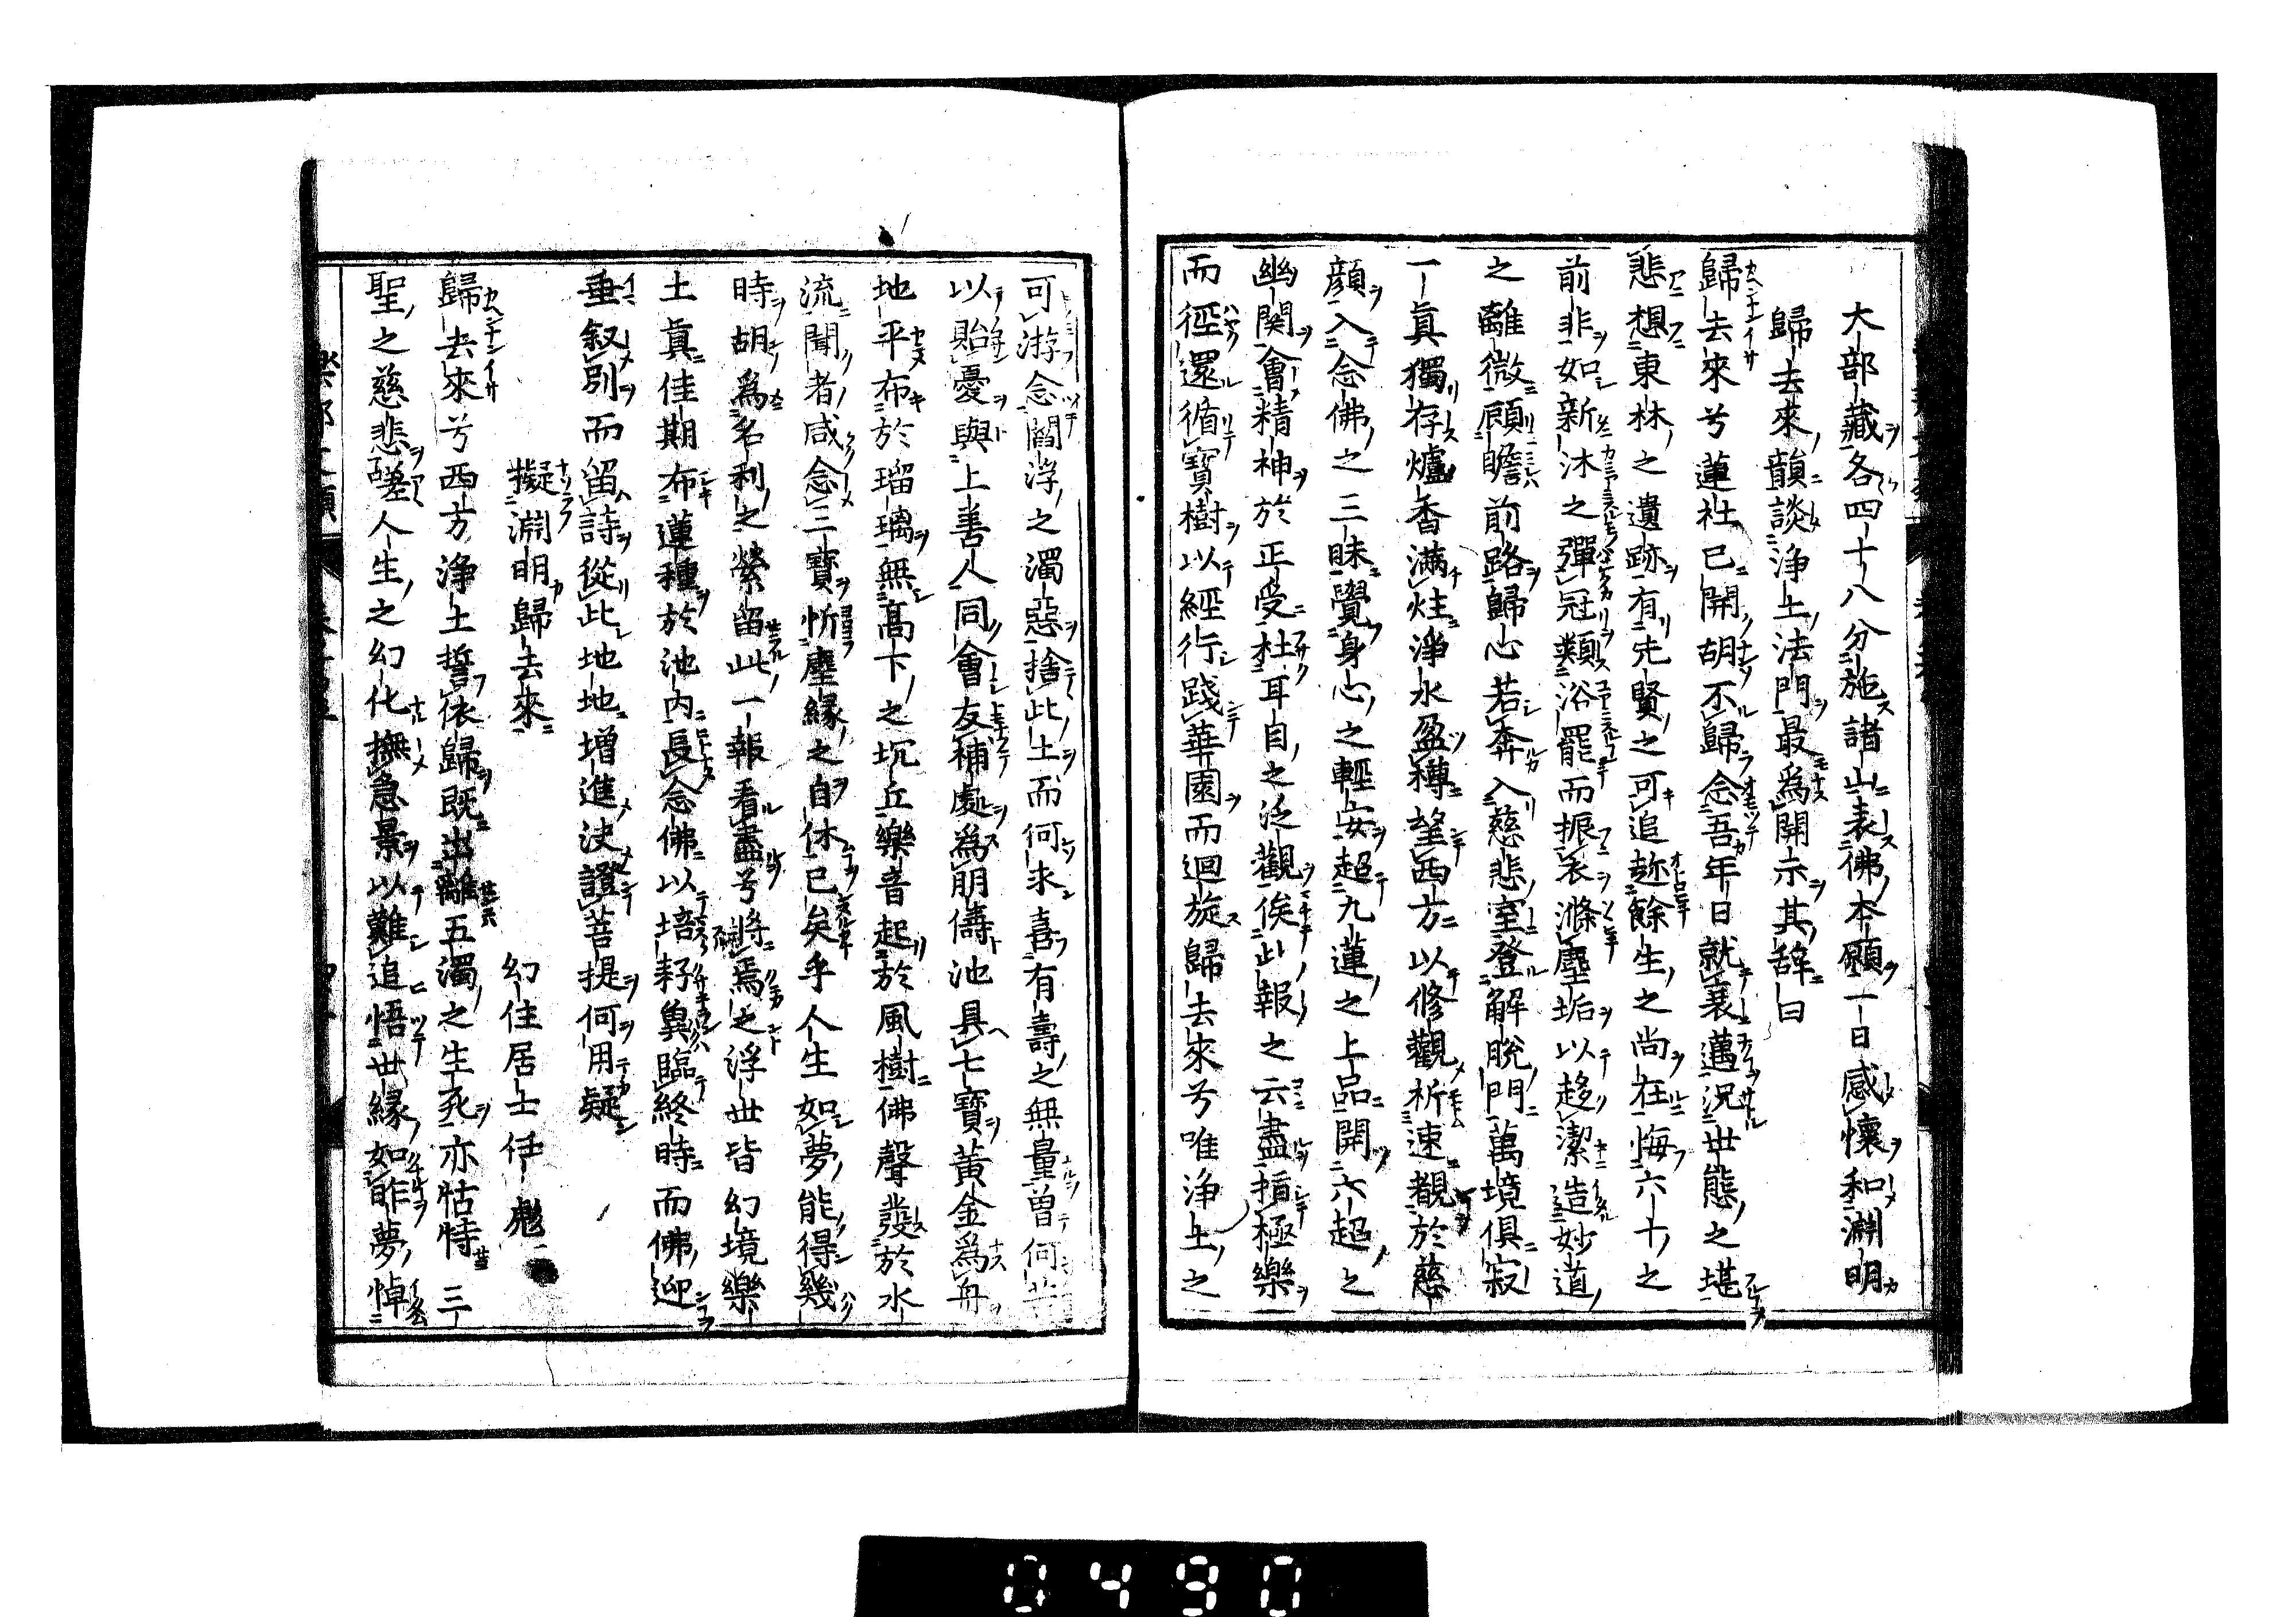 大部藏各四十八分施諸山表佛本願一日感懷和淵明
歸去來韻談淨土法門最爲開示其辞曰
歸去來兮蓮社已開胡不歸念吾年日就衰邁況世態之堪
悲想東林之遺跡有先賢之可追趂餘生之尚在悔六十之
前非如新沐之彈冠類浴罷而振衣滌塵垢以趍潔造妙道
之離微顧瞻前路歸心若奔入慈悲室登解脫門萬境俱寂
一眞獨存爐香滿炷淨水盈樽望西方以修觀祈速覩於慈
顔入念佛之三昧覺身心之輕安超九蓮之上品開六超之
幽関會精神於正受杜耳目之泛觀俟此報之云盡指極樂
而徑還循寶樹以經行踐華園而迴旋歸去來兮唯淨土之
可游念閻浮之濁惡捨此土而何求喜有壽之無量曾何
以貽憂與上善人同會友補處爲朋儔池具七寶黃金爲舟
地平布於瑠璃無高下之坑丘樂音起於風樹佛聲發於水
流聞者咸念三寶忻塵縁之自休已矣乎人生如夢能得幾
時胡爲名利之縈留此一報看盡兮將焉之浮世皆幻境樂
土眞佳期布蓮種於池内長念佛以培耔奠臨終時而佛迎
垂叙別而留詩從此地地增進決證菩提何用疑
擬淵明歸去來
幻住居士任彪
歸去來兮西方淨土誓依歸既出離五濁之生死亦怙恃三
聖之慈悲嗟人生之幻化撫急景以難追悟世縁如昨夢悼
0490